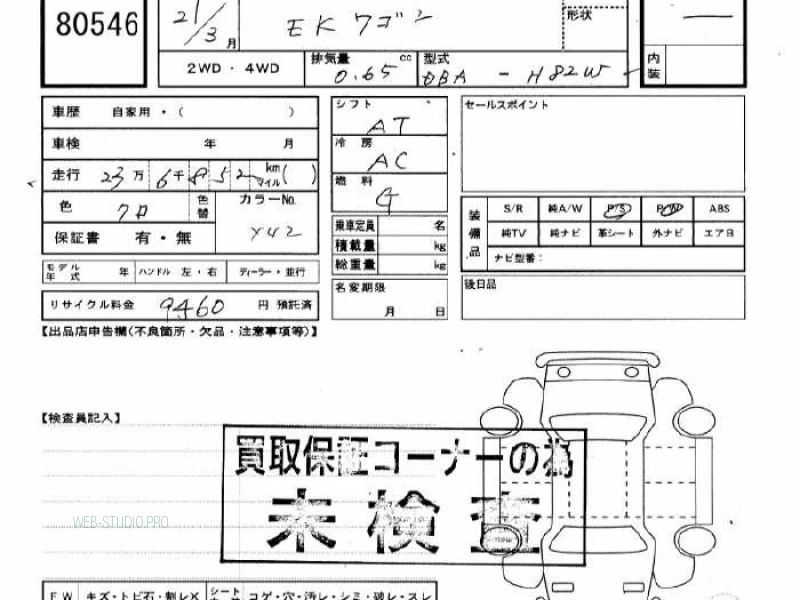 80546
21/3 月
EK ワゴン
形状
2WD ・ 4WD
排気量 0.65 cc
型式 DBA - H82W
内装
車歴 自家用 ・ ( )
車検 年 月
走行 23万 6千852 km マイル ( )
色 クロ 色替
カラーNo. X42
保証書 有 ・ 無
モデル年式 年 ハンドル 左 ・ 右 ディーラー ・ 並行
リサイクル料金 9460 円 預託済
シフト AT
冷房 AC
燃料 G
乗車定員 名
積載量 kg
総重量 kg
名変期限 月 日
セールスポイント
装備品
S/R 純A/W P/S P/W ABS
純TV 純ナビ 革シート 外ナビ エアB
ナビ型番:
後日品
【出品店申告欄(不良箇所・欠品・注意事項等)】
【検査員記入】
買取保証コーナーの為
未検査
WEB-STUDIO.PRO
FW キズ・トビ石・割レX シート コゲ・穴・汚レ・シミ・破レ・スレ